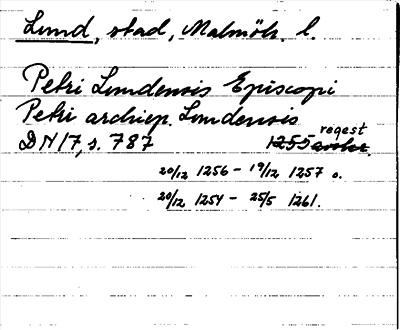 Lund, stad, Malmöh. l.
Petri Lundensis Episcopi
Petri archiep. Lundensis
regest
DN 17, s. 787 1255
20/12 1256 - 19/12 1257 o.
20/12 1254 - 25/5 1261.